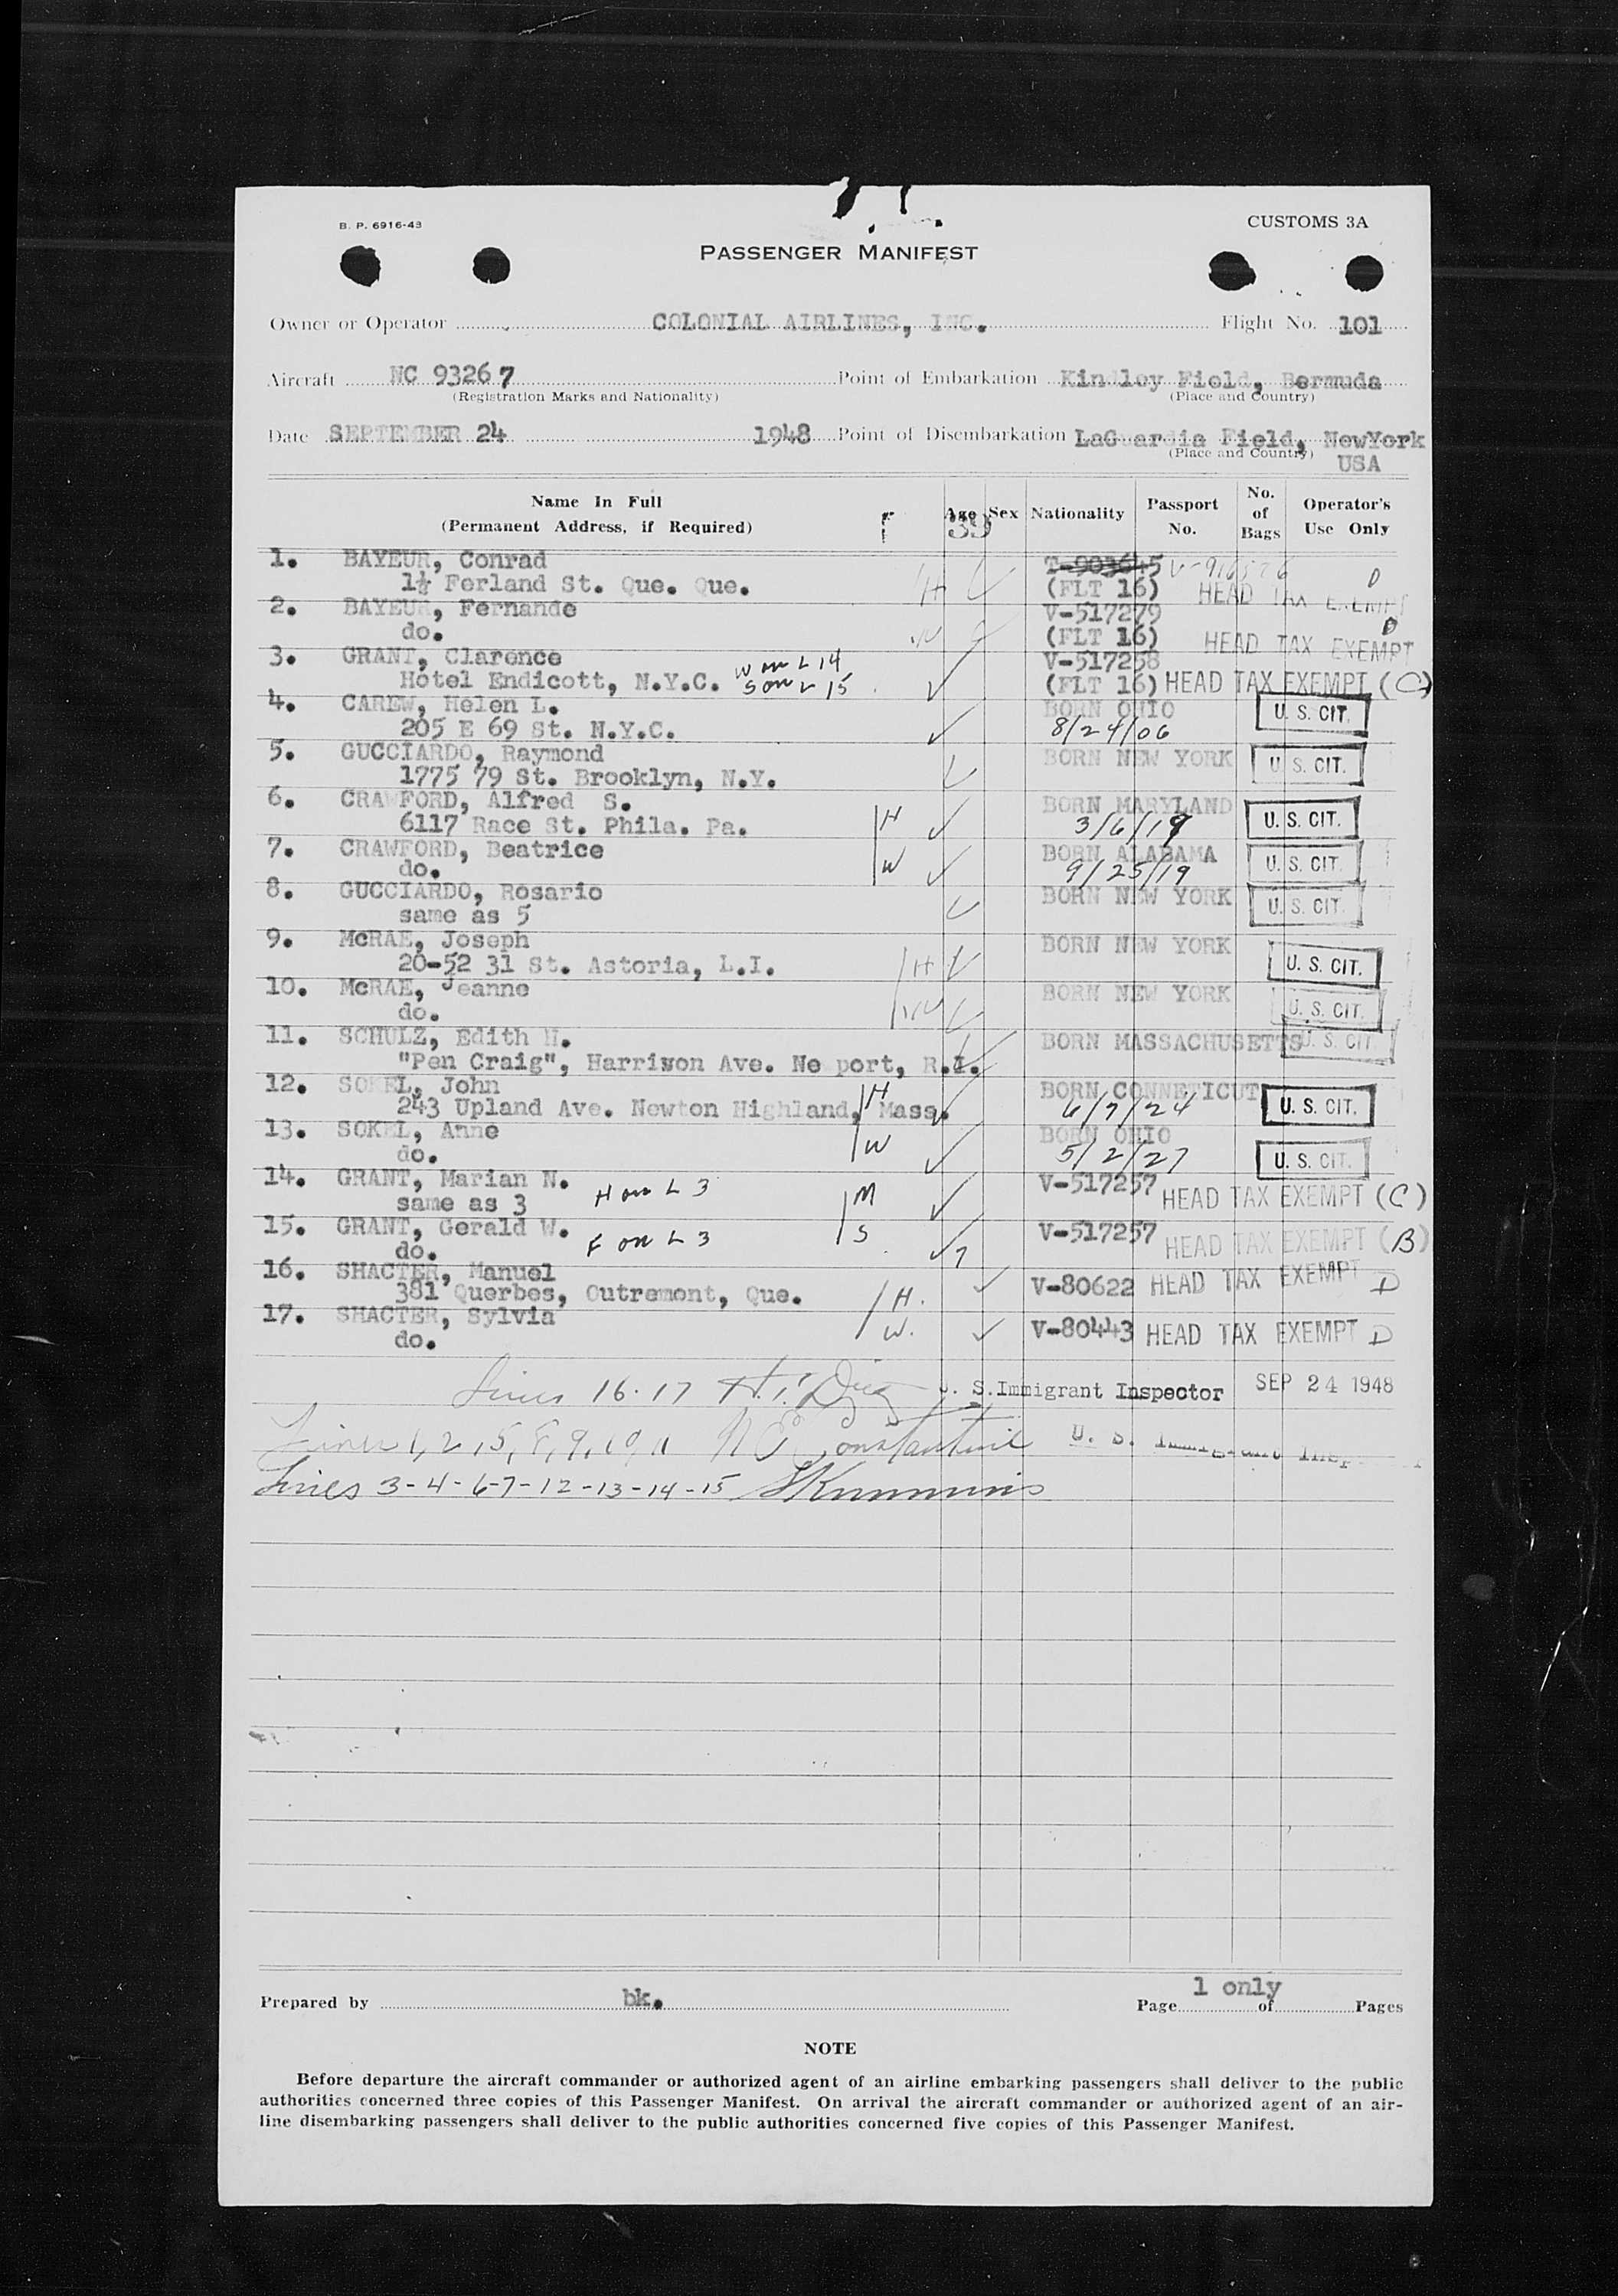 B. P. 6916-48
CUSTOMS 3A
PASSENGER MANIFEST
Owner or Operator COLONIAL AIRLINES, INC. Flight No. 101
Aircraft NC 93267 Point of Embarkation Kindley Field, Bermuda
(Registration Marks and Nationality) (Place and Country)
Date SEPTEMBER 24 1948 Point of Disembarkation LaGuardia Field, NewYork
(Place and Country) USA
Name In Full Age Sex Nationality Passport No. No. of Bags Operator's Use Only
(Permanent Address, if Required) 39
1. BAYEUR, Conrad T-903645
1½ Ferland St. Que. Que. H (FLT 16) HEAD TAX EXEMPT D
2. BAYEUR, Fernande V-517279
do. W (FLT 16) HEAD TAX EXEMPT D
3. GRANT, Clarence W on L 14 V-517258
Hotel Endicott, N.Y.C. S on L 15 (FLT 16) HEAD TAX EXEMPT (C)
4. CAREW, Helen L. BORN OHIO U. S. CIT.
205 E 69 St. N.Y.C. 8/24/06
5. GUCCIARDO, Raymond BORN NEW YORK U. S. CIT.
1775 79 St. Brooklyn, N.Y.
6. CRAWFORD, Alfred S. BORN MARYLAND
6117 Race St. Phila. Pa. H 3/6/19 U. S. CIT.
7. CRAWFORD, Beatrice BORN ALABAMA
do. W 9/25/19 U. S. CIT.
8. GUCCIARDO, Rosario BORN NEW YORK U. S. CIT.
same as 5
9. McRAE, Joseph BORN NEW YORK
20-52 31 St. Astoria, L.I. H U. S. CIT.
10. McRAE, Jeanne BORN NEW YORK
do. W U. S. CIT.
11. SCHULZ, Edith H. BORN MASSACHUSETTS U. S. CIT.
"Pen Craig", Harrison Ave. Ne port, R.I.
12. SOKEL, John H BORN CONNETICUT
243 Upland Ave. Newton Highland, Mass. 6/7/24 U. S. CIT.
13. SOKEL, Anne BORN OHIO
do. W 5/2/27 U. S. CIT.
14. GRANT, Marian N. H on L 3 M V-517257
same as 3 HEAD TAX EXEMPT (C)
15. GRANT, Gerald W. F on L 3 S V-517257
do. 7 HEAD TAX EXEMPT (B)
16. SHACTER, Manuel
381 Querbes, Outremont, Que. H. V-80622 HEAD TAX EXEMPT D
17. SHACTER, Sylvia
do. W. V-80443 HEAD TAX EXEMPT D
Lines 16-17 S. Immigrant Inspector SEP 24 1948
Lines 1, 2, 5, 8, 9, 10, 11 U. S. Immigrant
Lines 3-4-6-7-12-13-14-15
Prepared by bk. Page 1 only of Pages
NOTE
Before departure the aircraft commander or authorized agent of an airline embarking passengers shall deliver to the public
authorities concerned three copies of this Passenger Manifest. On arrival the aircraft commander or authorized agent of an air-
line disembarking passengers shall deliver to the public authorities concerned five copies of this Passenger Manifest.